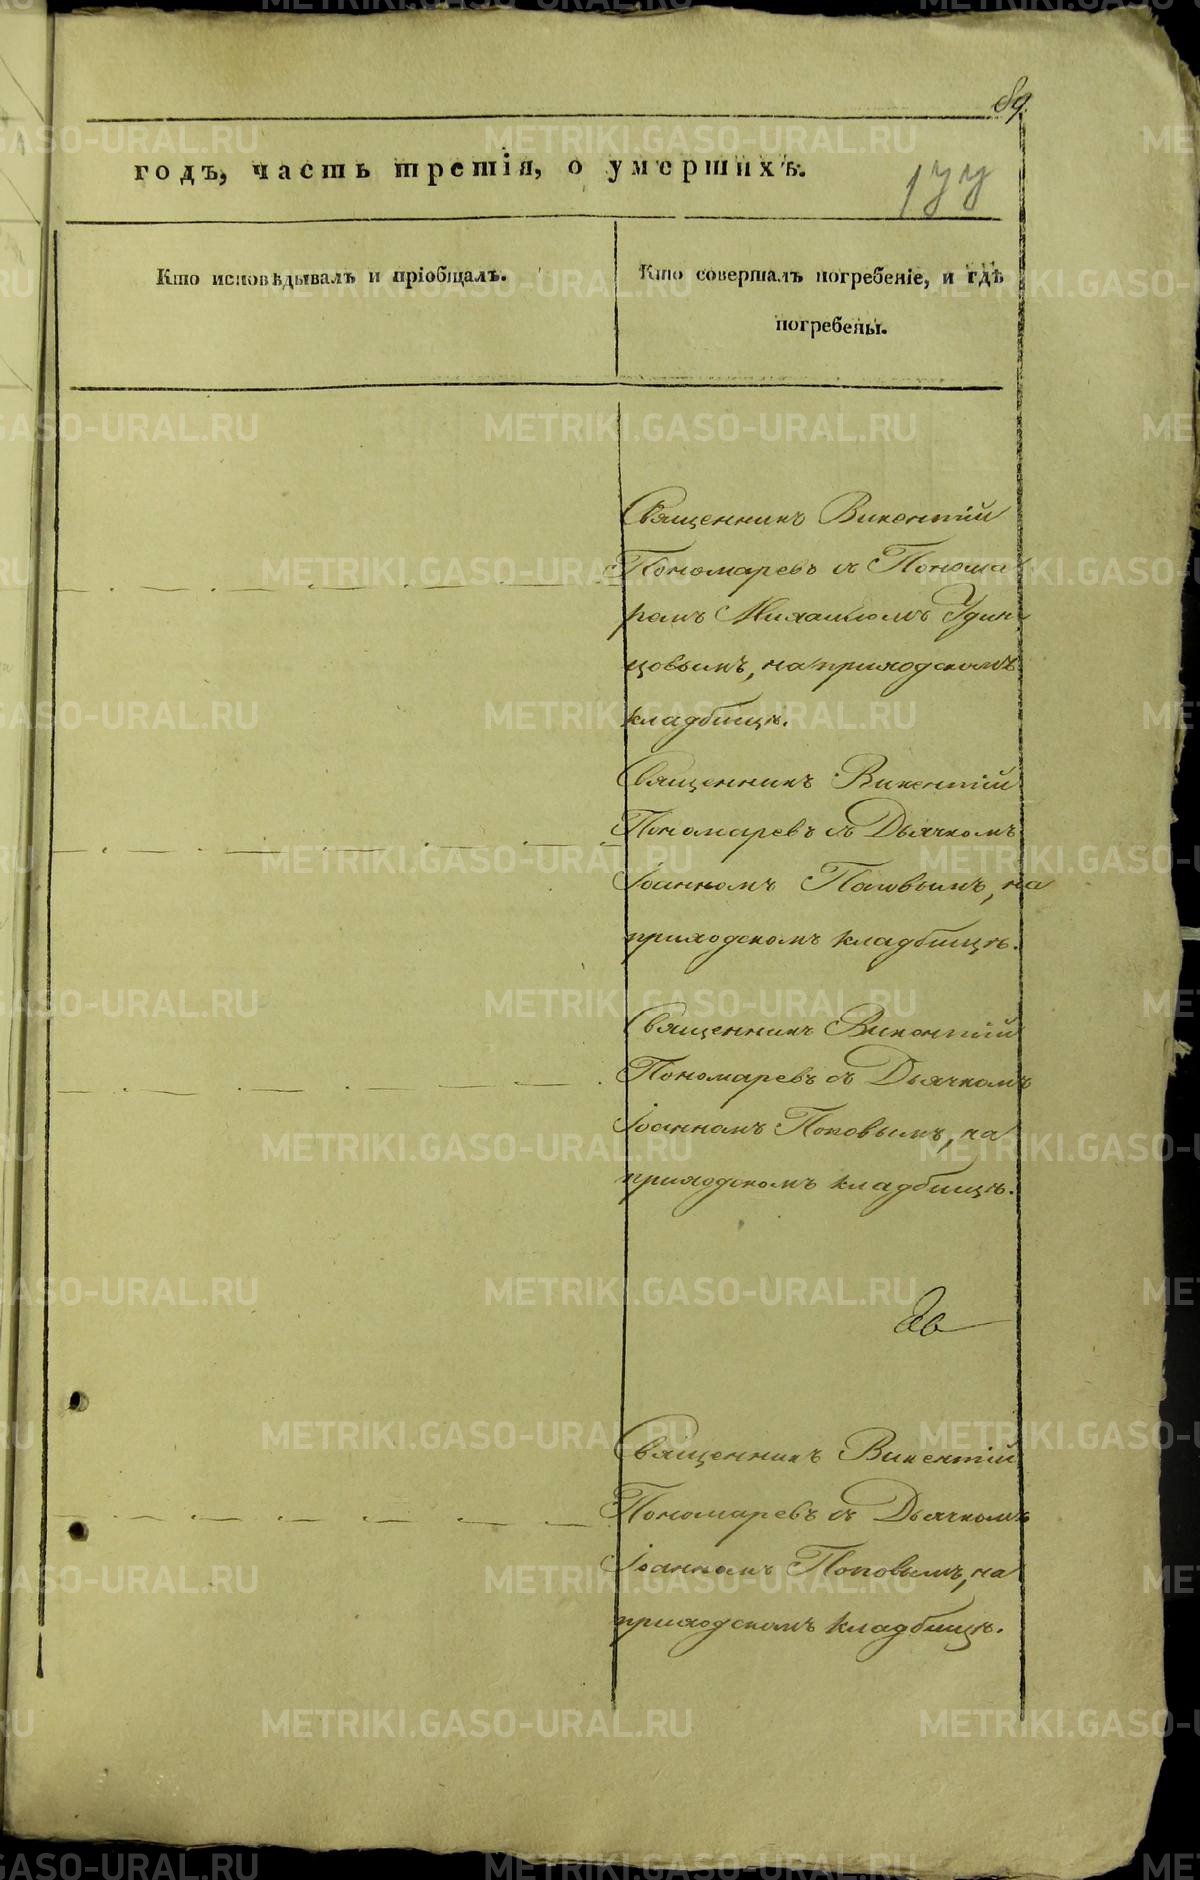 89.
годъ, часть третія, о умершихъ.
177
Кто исповѣдывалъ и пріобщалъ.
Кто совершалъ погребеніе, и гдѣ
погребены.
Священникъ Викентій
Пономаревъ съ Понома
ремъ Михаиломъ Удин
цовымъ, на приходскомъ
кладбищѣ.
Священникъ Викентій
Пономаревъ съ Дьячкомъ
Іоанномъ Поповымъ, на
приходскомъ кладбищѣ.
Священникъ Викентій
Пономаревъ съ Дьячкомъ
Іоанномъ Поповымъ, на
приходскомъ кладбищѣ.
Священникъ Викентій
Пономаревъ съ Дьячкомъ
Іоанномъ Поповымъ, на
приходскомъ кладбищѣ.
METRIKI.GASO-URAL.RU